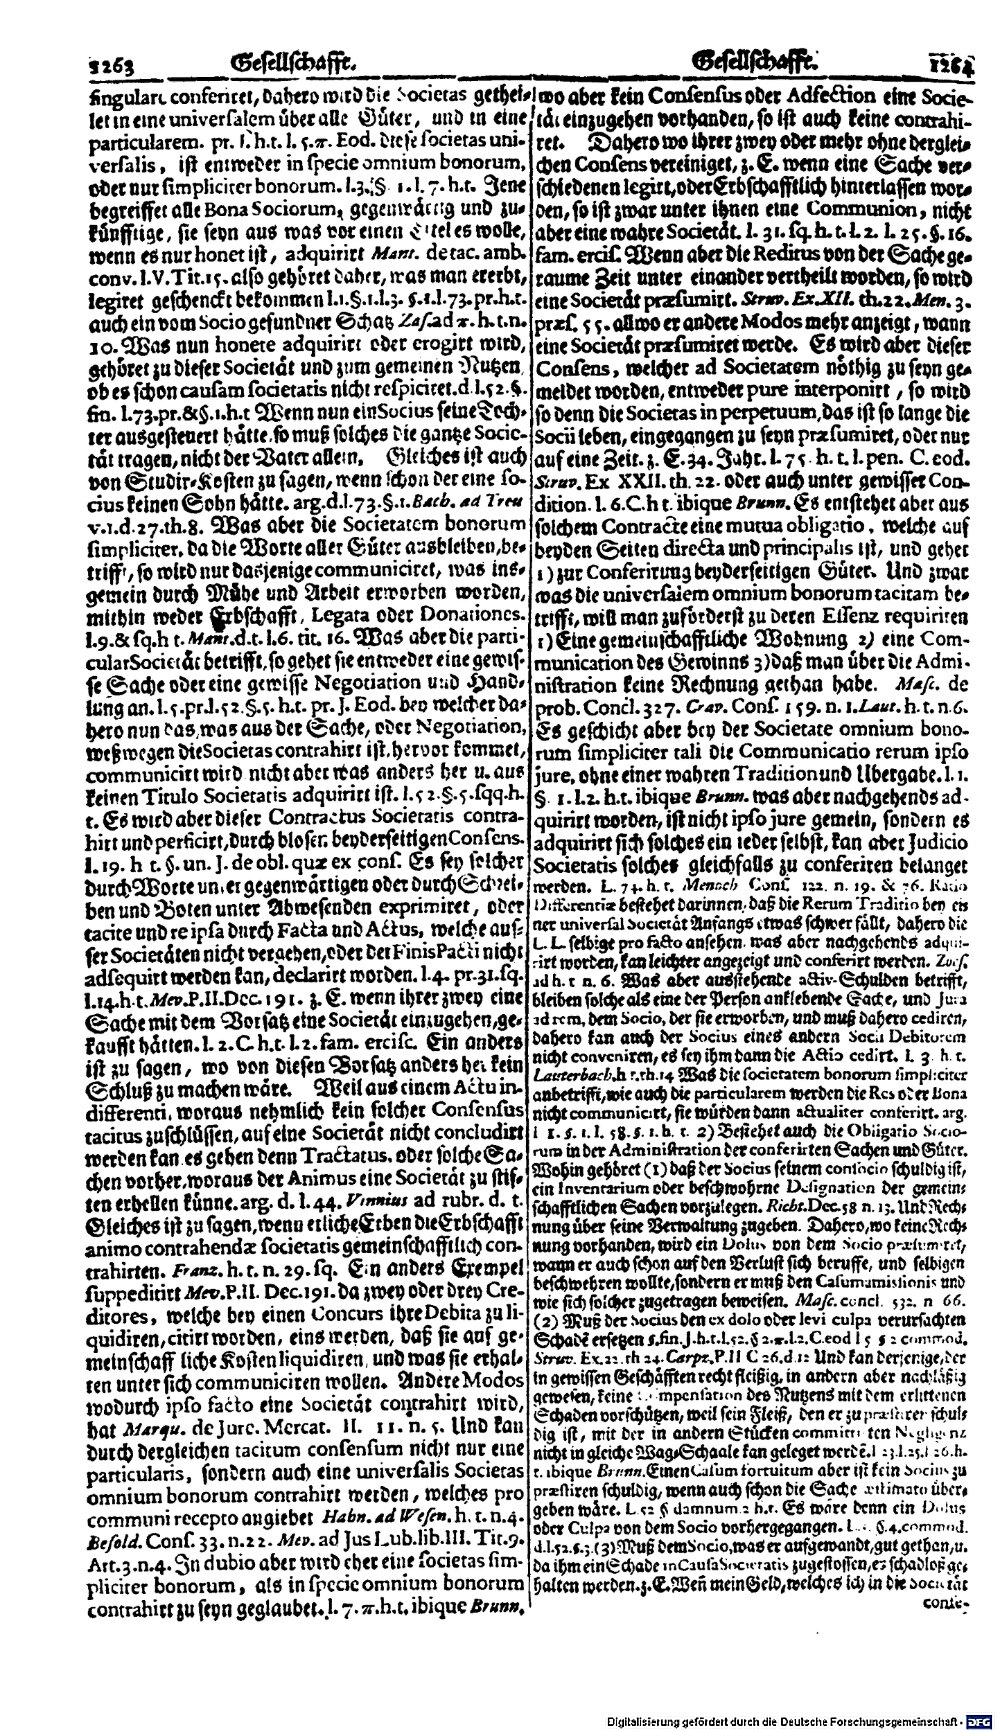 1263 Gesellschafft.
singulare conferiret, dahero wird die Societas gethei-
let in eine universalem über alle Güter, und in eine
particularem. pr. J. h. t. l. 5. π. Eod. diese societas uni-
versalis, ist entweder in specie omnium bonorum,
oder nur simpliciter bonorum. l. 3. §. 1. l. 7. h. t. Jene
begreiffet alle Bona Sociorum, gegenwärtig und zu-
künfftige, sie seyn aus was vor einen Titel es wolle,
wenn es nur honet ist, adquirirt Mant. de tac. amb.
conv. l. V. Tit. 15. also gehöret daher, was man ererbt,
legiret geschenckt bekommen l. 1. §. 1. l. 3. §. 1. l. 73. pr. h. t.
auch ein vom Socio gefundner Schatz Zas. ad π. h. t. n.
10. Was nun honete adquirirt oder erogirt wird,
gehöret zu dieser Societät und zum gemeinen Nutzen,
ob es schon causam societatis nicht respiciret. d. l. 52. §.
fin. l. 73. pr. & §. 1. h. t Wenn nun ein Socius seine Toch-
ter ausgesteuert hätte. so muß solches die gantze Socie-
tät tragen, nicht der Vater allein. Gleiches ist auch
von Studir-Kosten zu sagen, wenn schon der eine so-
cius keinen Sohn hätte. arg. d. l. 73. §. 1. Bach. ad Treu
v. 1. d. 27. th. 8. Was aber die Societatem bonorum
simpliciter, da die Worte aller Güter ausbleiben, be-
trifft, so wird nur dasjenige communiciret, was ins-
gemein durch Mühe und Arbeit erworben worden,
mithin weder Erbschafft, Legata oder Donationes.
l. 9. & sq. h t. Mant. d. t. l. 6. tit. 16. Was aber die parti-
cular Societät betrifft, so gehet sie entweder eine gewis-
se Sache oder eine gewisse Negotiation und Hand-
lung an. l. 5. pr. l. 52. §. 5. h. t. pr. J. Eod. bey welcher da-
hero nun das, was aus der Sache, oder Negotiation,
weßwegen die Societas contrahirt ist, hervor kommet,
communicirt wird nicht aber was anders her u. aus
keinen Titulo Societatis adquirirt ist. l. 52. §. 5. sqq. h.
t. Es wird aber dieser Contractus Societatis contra-
hirt und perficirt, durch blosen beyderseitigen Consens.
l. 19. h t. §. un. J. de obl. quæ ex cons. Es sey solcher
durch Worte unter gegenwärtigen oder durch Schrei-
ben und Boten unter Abwesenden exprimiret, oder
tacite und re ipsa durch Facta und Actus, welche aus-
ser Societäten nicht vergehen, oder der Finis Pacti nicht
adsequirt werden kan, declarirt worden. l. 4. pr. 31. sq.
l. 14. h. t. Mev. P. II. Dec. 191. z. E. wenn ihrer zwey eine
Sache mit dem Vorsatz eine Societät einzugehen, ge-
kaufft hätten. l. 2. C. h. t. l. 2. fam. ercisc. Ein anders
ist zu sagen, wo von diesen Vorsatz anders her kein
Schluß zu machen wäre. Weil aus einem Actu in-
differenti, woraus nehmlich kein solcher Consensus
tacitus zuschlüssen, auf eine Societät nicht concludirt
werden kan. es geben denn Tractatus, oder solche Sa-
chen vorher, woraus der Animus eine Societät zu stif-
ten erhellen künne. arg. d. l. 44. Vinnius ad rubr. d. t.
Gleiches ist zu sagen, wenn etliche Erben die Erbschafft
animo contrahendæ societatis gemeinschafftlich con-
trahirten. Franz. h. t. n. 29. sq. Ein anders Exempel
suppeditirt Mev. P. II. Dec. 191. da zwey oder drey Cre-
ditores, welche bey einen Concurs ihre Debita zu li-
quidiren, citirt worden, eins werden, daß sie auf ge-
meinschafftliche Kosten liquidiren, und was sie erhal-
ten unter sich communiciren wollen. Andere Modos
wodurch ipso facto eine Societät contrahirt wird,
hat Marqu. de Jure Mercat. II. 11. n. 5. Und kan
durch dergleichen tacitum consensum nicht nur eine
particularis, sondern auch eine universalis Societas
omnium bonorum contrahirt werden, welches pro
communi recepto angiebet Hahn. ad Wesen. h. t. n. 4.
Besold. Cons. 33. n. 22. Mev. ad Jus Lub. lib. III. Tit. 9.
Art. 3. n. 4. In dubio aber wird eher eine societas sim-
pliciter bonorum, als in specie omnium bonorum
contrahirt zu seyn geglaubet. l. 7. π. h. t. ibique Brunn.
Gesellschafft. 1264
wo aber kein Consensus oder Adfection eine Socie-
tät einzugehen vorhanden, so ist auch keine contrahi-
ret. Dahero wo ihrer zwey oder mehr ohne derglei-
chen Consens vereiniget, z. E. wenn eine Sache ver-
schiedenen legirt, oder Erbschafftlich hinterlassen wor-
den, so ist zwar unter ihnen eine Communion, nicht
aber eine wahre Societät. l. 31. sq. h. t. l. 2. l. 25. §. 16.
fam. ercis. Wenn aber die Reditus von der Sache ge-
raume Zeit unter einander vertheilt worden, so wird
eine Societät præsumirt. Struv. Ex. XII. th. 22. Men. 3.
præs. 55. allwo er andere Modos mehr anzeigt, wann
eine Societät præsumiret werde. Es wird aber dieser
Consens, welcher ad Societatem nöthig zu seyn ge-
meldet worden, entweder pure interponirt, so wird
so denn die Societas in perpetuum, das ist so lange die
Socii leben, eingegangen zu seyn præsumiret, oder nur
auf eine Zeit. z. E. 34. Jahr. l. 75. h. t. l. pen. C. eod.
Struv. Ex XXII. th. 22. oder auch unter gewisser Con-
dition. l. 6. C. h t. ibique Brunn. Es entstehet aber aus
solchem Contracte eine mutua obligatio, welche auf
beyden Seiten directa und principalis ist, und gehet
1) zur Conferirung beyderseitigen Güter. Und zwar
was die universalem omnium bonorum tacitam be-
trifft, will man zuförderst zu deren Essenz requiriren
1) Eine gemeinschafftliche Wohnung 2) eine Com-
munication des Gewinns 3) daß man über die Admi-
nistration keine Rechnung gethan habe. Masc. de
prob. Concl. 327. Grav. Cons. 159. n. 1. Laut. h. t. n. 6.
Es geschicht aber bey der Societate omnium bono-
rum simpliciter tali die Communicatio rerum ipso
jure, ohne einer wahren Tradition und Ubergabe. l. 1.
§. 1. l. 2. h. t. ibique Brunn. was aber nachgehends ad-
quirirt worden, ist nicht ipso jure gemein, sondern es
adquirirt sich solches ein ieder selbst, kan aber Judicio
Societatis solches gleichfalls zu conferiren belanget
werden. L. 74. h. t. Menoch Cons. 122. n. 19. & 76. Ratio
Differentiæ bestehet darinnen, daß die Rerum Traditio bey ei-
ner universal Societät Anfangs etwas schwer fällt, dahero die
L. L. selbige pro facto ansehen, was aber nachgehends adqui-
rirt worden, kan leichter angezeigt und conferirt werden. Zoes.
ad h. t n. 6. Was aber ausstehende activ-Schulden betrifft,
bleiben solche als eine der Person anklebende Sache, und Jura
ad rem, dem Socio, der sie erworben, und muß dahero cediren,
dahero kan auch der Socius eines andern Socii Debitorem
nicht conveniren, es sey ihm dann die Actio cedirt. l. 3. h. t.
Lauterbach. h t. th. 14 Was die societatem bonorum simpliciter
anbetrifft, wie auch die particularem werden die Res oder Bona
nicht communicirt, sie würden dann actualiter conferirt. arg.
l 1. §. 1. l. 58. §. 1. h. t. 2) Bestehet auch die Obligatio Socio-
rum in der Administration der conferirten Sachen und Güter.
Wohin gehöret (1) daß der Socius seinem consocio schuldig ist,
ein Inventarium oder beschwohrne Designation der gemein-
schafftlichen Sachen vorzulegen. Richt. Dec. 58 n. 13. Und Rech-
nung über seine Verwaltung zugeben. Dahero, wo keine Rech-
nung vorhanden, wird ein Dolus von dem Socio præsumiret,
wann er auch schon auf den Verlust sich beruffe, und selbigen
beschwehren wollte, sondern er muß den Casum amissionis und
wie sich solcher zugetragen beweisen. Masc. concl. 532. n 66.
(2) Muß der Socius den ex dolo oder levi culpa verursachten
Schadē ersetzen §. fin. J. h. t. l. 52. § 2. π. l. 2. C. eod l 5 § 2 commod.
Struv. Ex. 22. th 24. Carpz. P. II C 26. d. 12 Und kan derjenige, der
in gewissen Geschäfften recht fleißig, in andern aber nachläßig
gewesen, keine Compensation des Nutzens mit dem erlittenen
Schaden vorschützen, weil sein Fleiß, den er zu præstirer schul-
dig ist, mit der in andern Stücken committirten Negligenz
nicht in gleiche Wag-Schaale kan geleget werdē. l 23. l. 25. l 26. h.
t. ibique Brunn. Einen Casum fortuitum aber ist kein Socius zu
præstiren schuldig, wenn auch schon die Sache æstimato über-
geben wäre. L. 52 § damnum 2 h. t. Es wäre denn ein Dolus
oder Culpa von dem Socio vorhergegangen. §. 4. commod.
d. l. 52. §. 3. (3) Muß dem Socio, was er aufgewandt, gut gethan, u.
da ihm ein Schade in Causa Societatis zugestossen, er schadloß ge-
halten werden. z. E. Weñ mein Geld, welches ich in die Societät
confe-
Digitalisierung gefördert durch die Deutsche Forschungsgemeinschaft - DFG